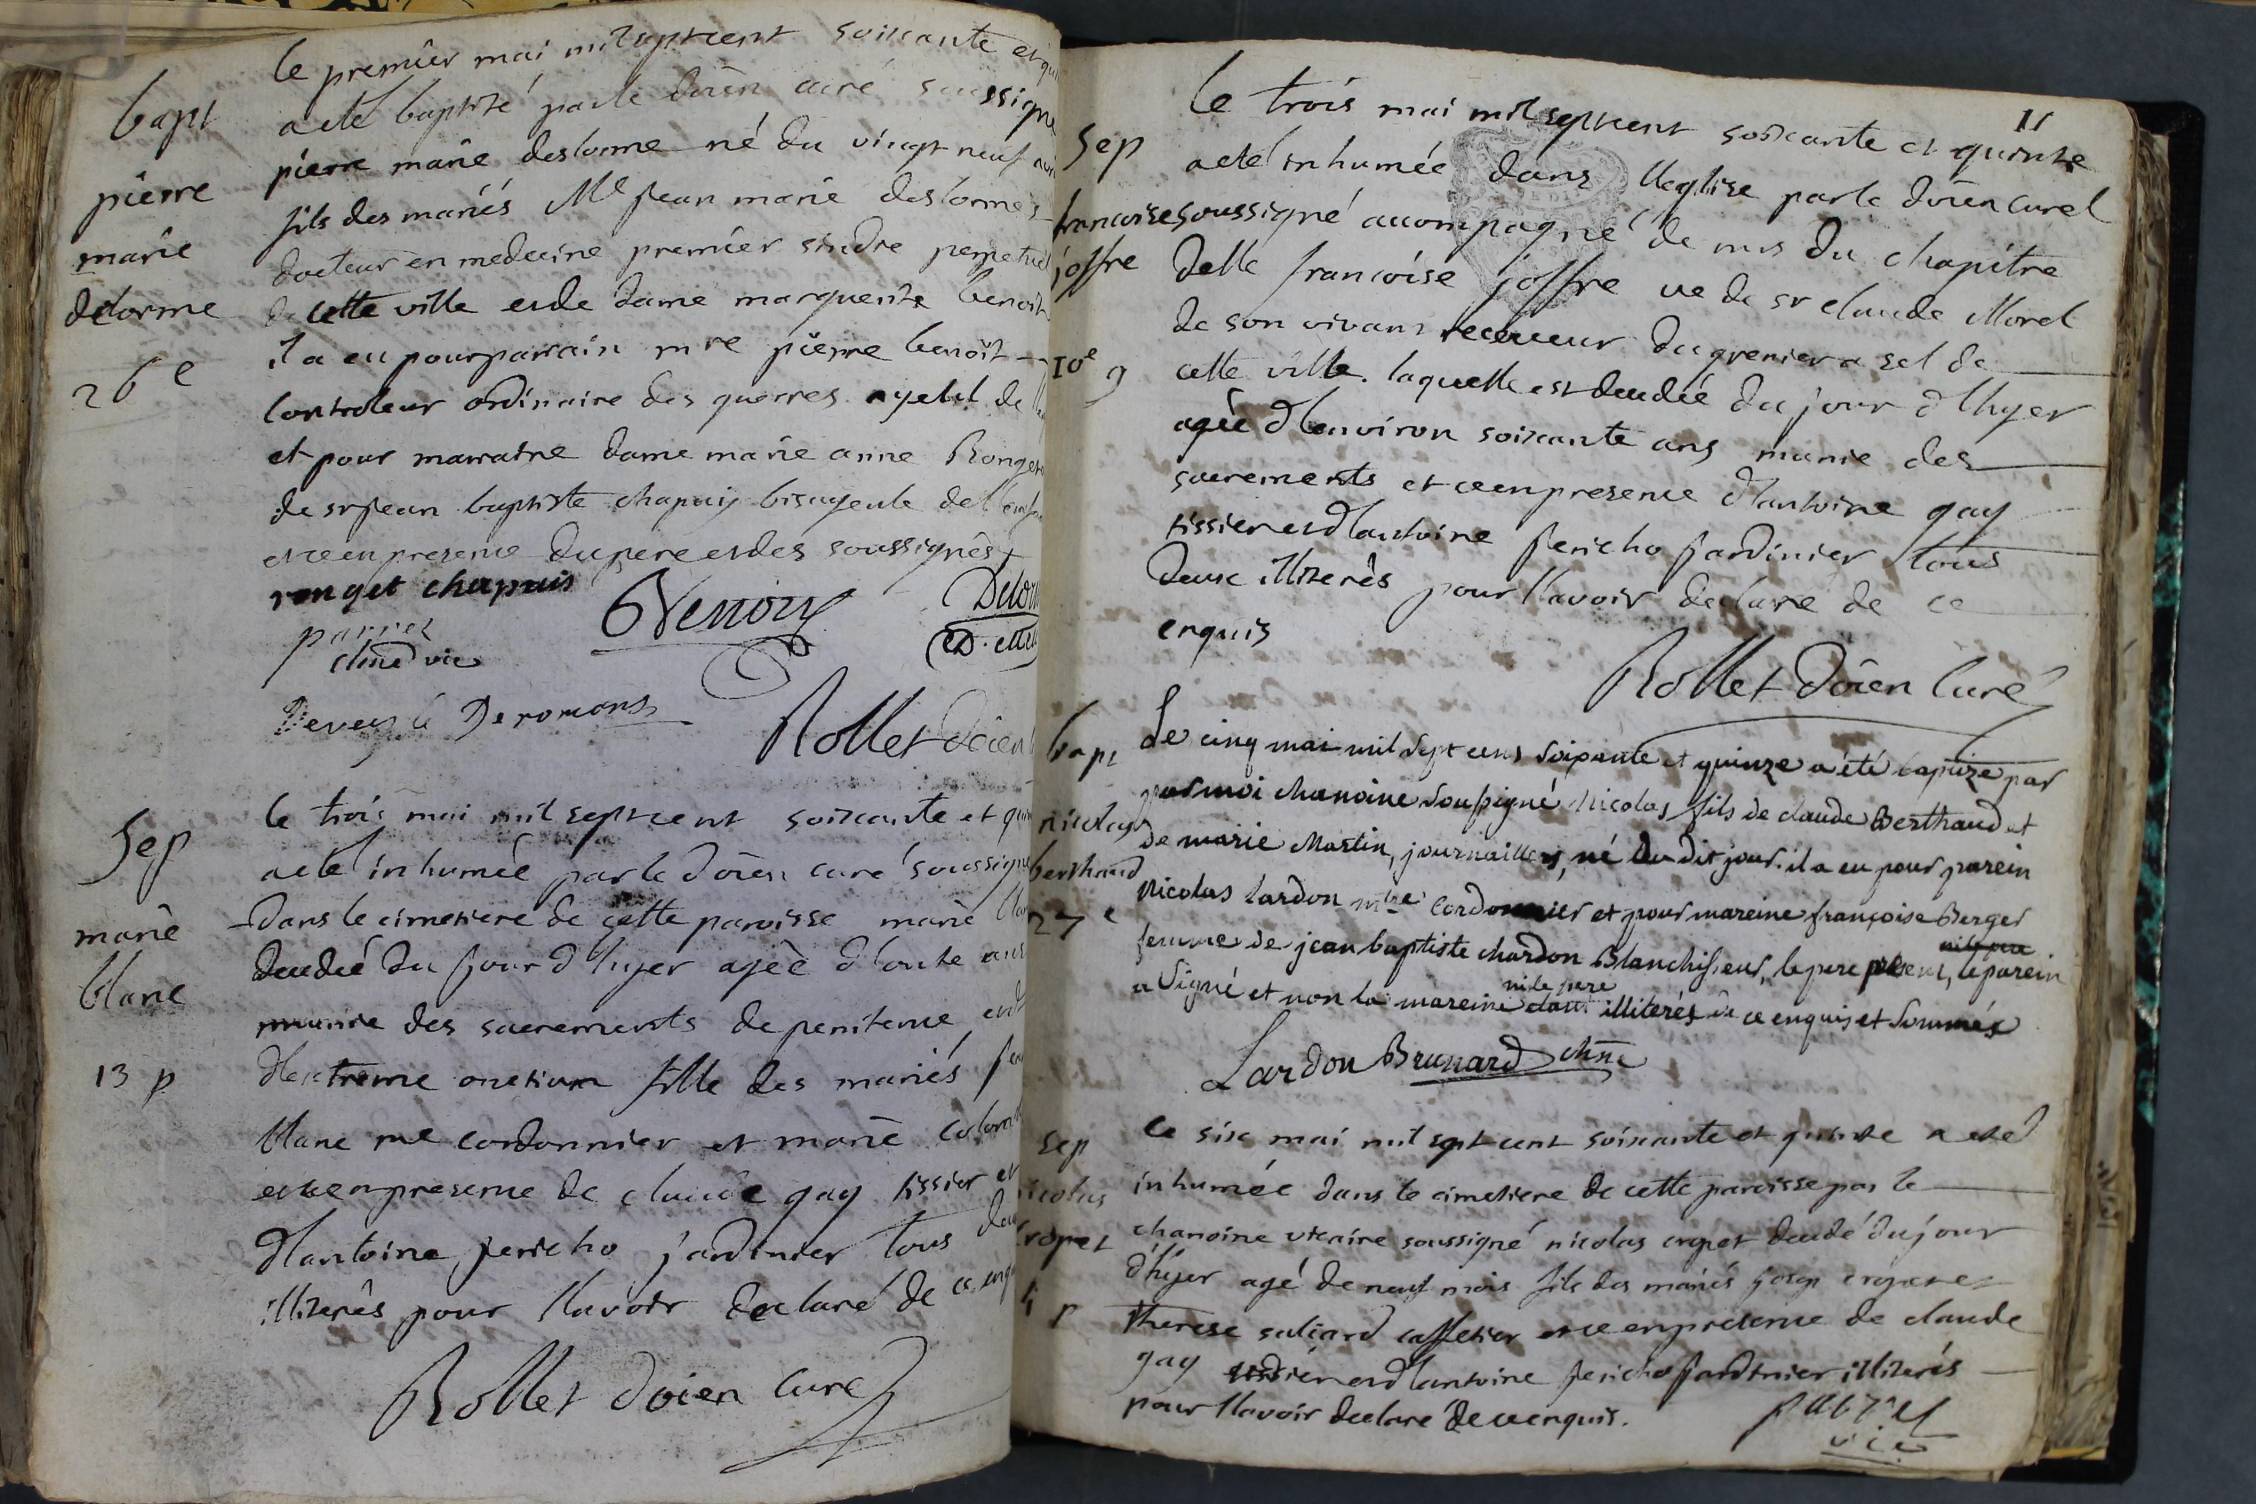 bapt
pierre
marie
delorme
26e
le premier mai mil sept cent soissante et
a eté baptisé par le doïen curé soussigne
pierre marie deslorme né du vingt neuf
fils des mariés Me jean marie deslormes
docteur en medecine premier sindic perpetuel
de cette ville et de dame marguerite benoit
il a eu pour parrain mre pierre benoit
controleur ordinaire des guerres ayeul de
et pour marraine dame marie anne Ronget
de sr jean baptiste chapuis bisayeule de l'enfan
et ce en presence du pere et des soussignés
ronget chapuis
Benoit
Delorm
D. M.
chne vic
De romans
Rollet doïen
Sep
marie
blanc
13 p
le trois mai mil sept cent soissante et quin
a eté inhumée par le doïen curé soussigne
dans le cimetiere de cette paroisse marie blan
decedeé du jour d'hyer ageè d'onze ans
munie des sacrements de penitence et d
d'extreme onction fille des mariés
blanc me cordonnier et marie
et ce en presence de claude gay tissier et
d'antoine jericho jardinier tous deux
illiterés pour l'avoir declaré de ce enq
Rollet doïen curé
11
Sep
francoise
joffre
10e 9
le trois mai mil sept cent soissante et quinze
a eté inhumée dans l'eglise par le doïen curel
soussigné accompagné de mrs du chapitre
delle francoise joffre ve de sr claude Morel
de son vivant receveur du grenier a sel de
cette ville. laquelle est decedée du jour d'hyer
ageè d'environ soixante ans munie des
sacrements et ce en presence d'antoine gay
tissier et d'antoine jericho jardinier tous
deux illiterés pour l'avoir declaré de ce
enquis
Rollet doïen curé
bapt
nicolas
berthaud
27e
Le cinq mai mil sept cens soixante et quinze a été baptizé par
par moi chanoine soussigné Nicolas fils de claude Berthaud et
de marie Martin, journailler, né du dit jour. il a eu pour parein
Nicolas Lardon mtre cordonnier et pour mareine françoise Berger
femme de jean baptiste chardon Blanchisseur, le pere present, le parein
a signé et non la mareine ni le pere illiterés de ce enquis et sommés
Lardon Brunard chne
Sep
nicolas
cropet
p
Le six mai mil sept cent soixante et quinze a eté
inhumée dans le cimetiere de cette paroisse par le
chanoine vicaire soussigné nicolas cropet decedé du jour
d'hyer agé de neuf mois fils des mariés
therese caffetier et ce en presence de claude
gay tissier et d'antoine jericho jardinier illiterés
pour l'avoir declaré de ce enquis.
vic